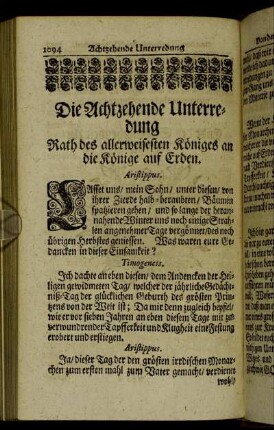 1094 Achtzehende Unterredung
Die Achtzehende Unterre-
dung
Rath des allerweisesten Königes an
die Könige auf Erden.
Aristippus.
LAsset uns/ mein Sohn/ unter diesen/ von
ihrer Zierde halb-beraubten/ Bäumen
spatzieren gehen/ und so lange der heran-
nahende Winter uns noch einige Strah-
len angenehmer Tage vergönnet/des noch
übrigen Herbstes geniessen. Was waren eure Ge-
dancken in dieser Einsamkeit?
Timogenes.
Ich dachte an eben diesen/ dem Andencken der Hei-
ligen gewidmeten Tag/ welcher der jährliche Gedächt-
niß-Tag der glücklichen Geburth des grösten Prin-
tzens von der Welt ist; Da mir denn zugleich beyfiel/
wie er vor sieben Jahren an eben diesem Tage mit zu-
verwundrender Tapfferkeit und Klugheit eine Festung
erobert und erstiegen.
Aristippus.
Ja/ dieser Tag der den grösten irrdischen Monar-
chen zum ersten mahl zum Vater gemacht/ verdienen
wohl/